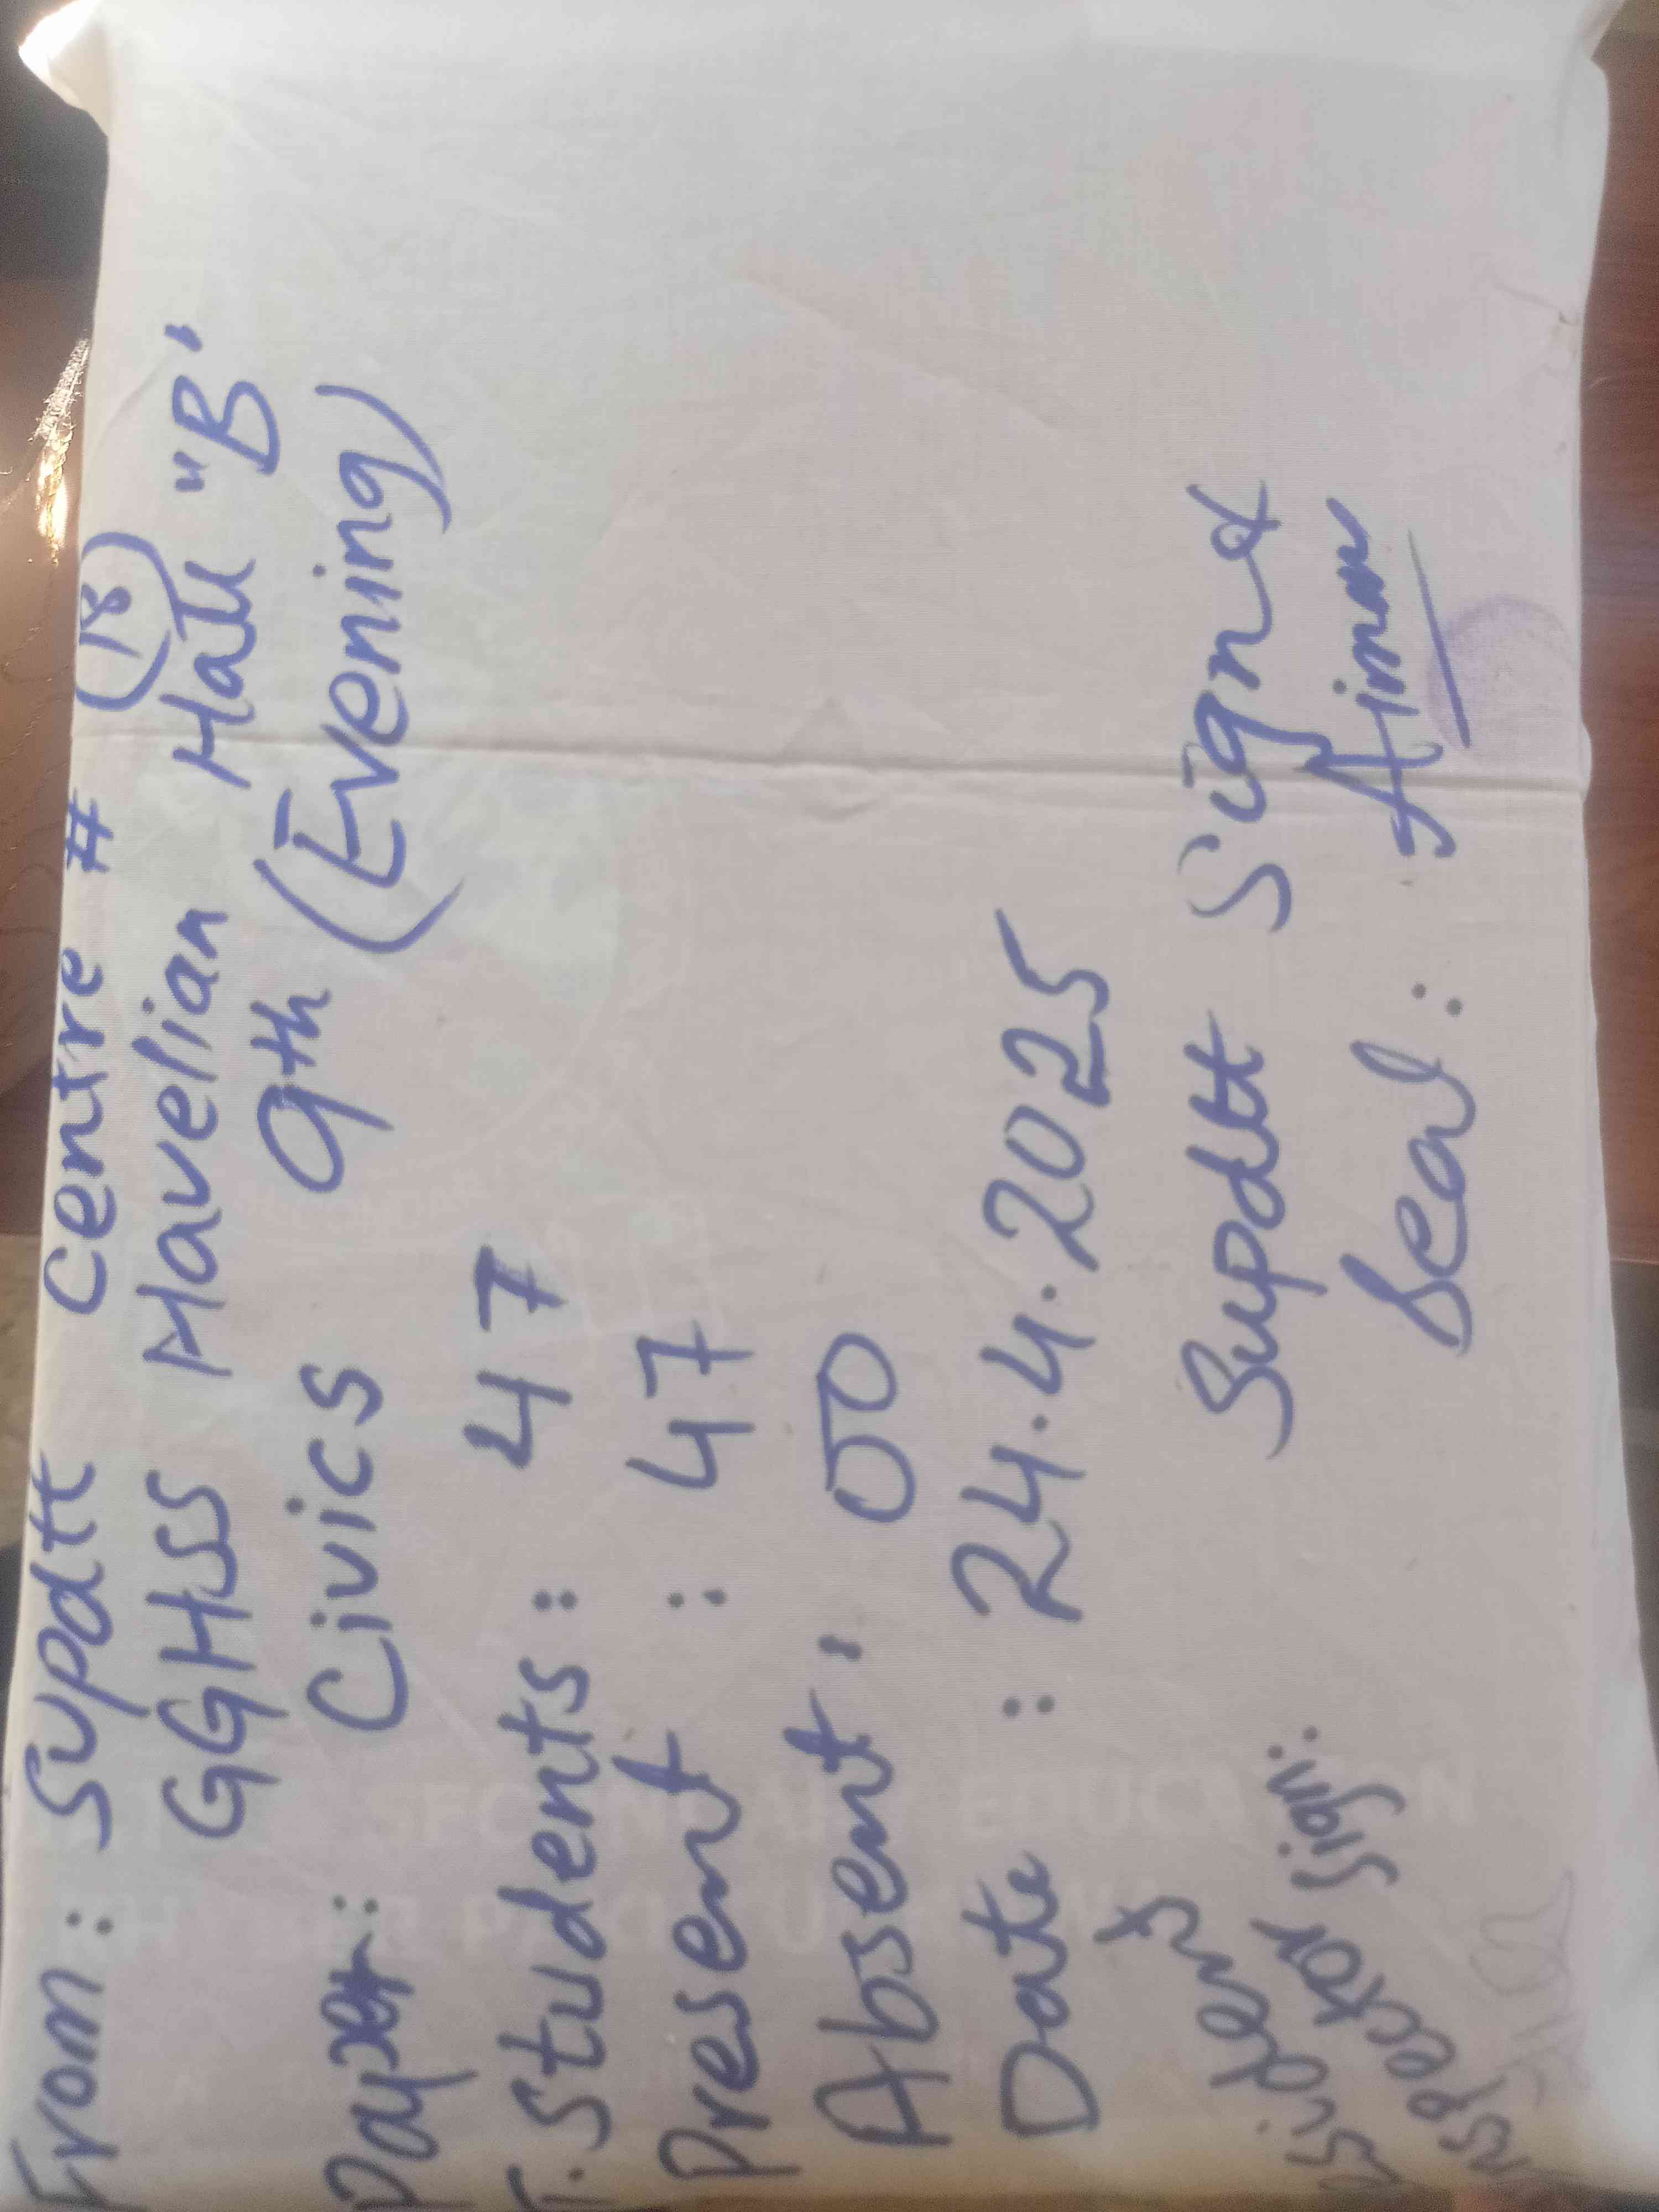 From: Supdtt Centre # (18)
GGHSS Havelian Hall "B"
Paper: Civics 9th (Evening)
T. Students: 47
Present : 47
Absent, 00
Date : 24.4.2025
Resident
Inspector Sign:
Supdtt Sign &
Seal :
SECONDARY EDUCATION